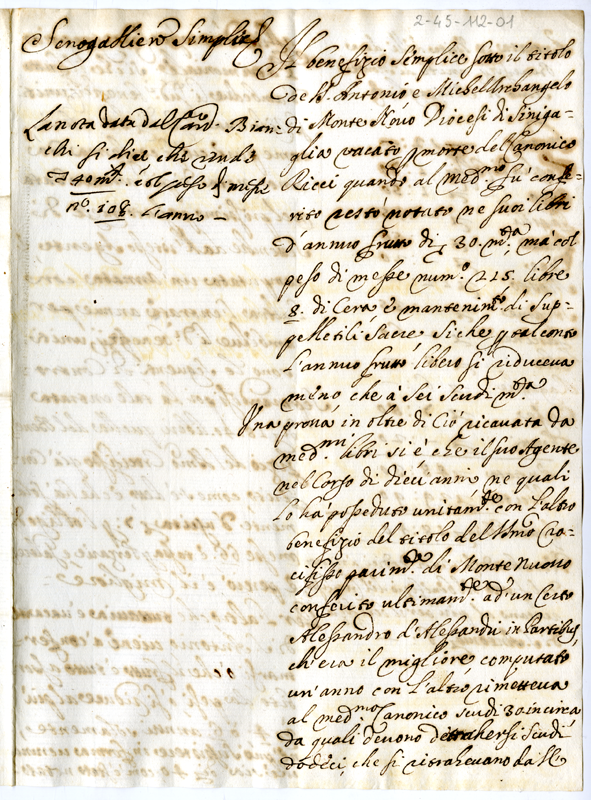 2-45-112-01
Senogallien Simplice
La nota data dal Card. Bian=
chi si dice che rende
40 m.ta col peso di messe
n.o 108. l'anno –
Il benefizio semplice sotto il titolo
de S. Antonio e Michell'Archangelo
di Monte Novo Diocesi di Siniga=
glia vacato p morte del Canonico
Ricci quando al med.mo fù confe=
rito restò notato ne suoi libri
d'annuo frutto di 30. m.ta, mà col
peso di messe num.o 225. libre
8. di Cera e mantenim.to di Sup=
pelletili Sacre siche p tal conto
l'annuo frutto libero si riduceva
meno che à sei scudi m.ta
Una prova in oltre di Ciò ricavata da
med.mi libri si é che il suo Agente
nel Corso di dieci anni ne quali
lo hà posseduto unitam.te con l'altro
benefizio del titolo del SSmo Cro=
cifisso parim.te di Monte Nuovo
conferito ultimam.te ad un Certo
Alessandro d'Alessandri in Partibus,
ch'era il migliore computato
un'anno con l'altro rimetteva
al med.mo Canonico scudi 30 incirca
da quali devono detrahersi scudi
dodeci, che si ritrahevano da